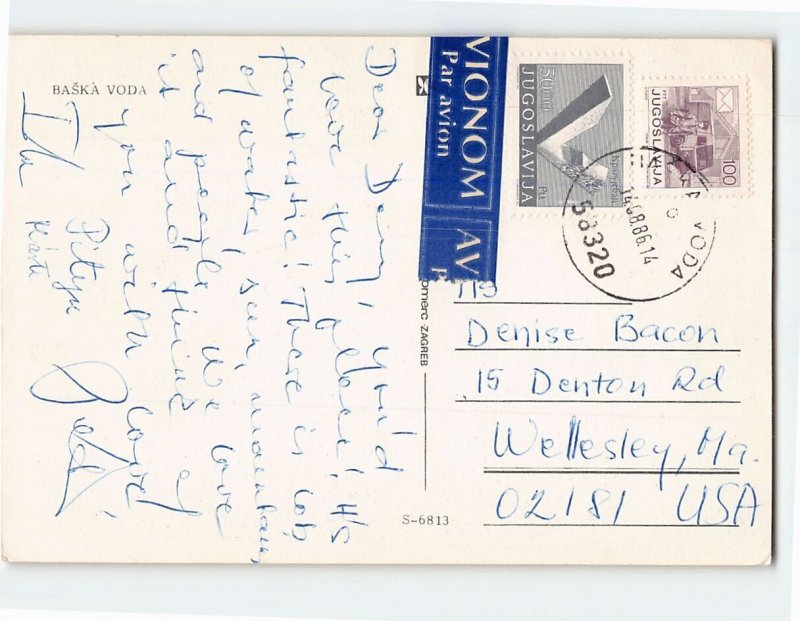 BAŠKA VODA
Dear Deni, You'd
love this place! It's
fantastic! There is lots
of water, sun, mountains,
and people we love
is and think of
you with love!
Petyu
Kati
AVIONOM
Par avion
AV
P
50
JUGOSLAVIJA
100
PTT
JUGOSLAVIJA
VODA
14.8.86.14
58320
omerc ZAGREB
S-6813
Ms
Denise Bacon
15 Denton Rd
Wellesley, Ma.
02181 USA